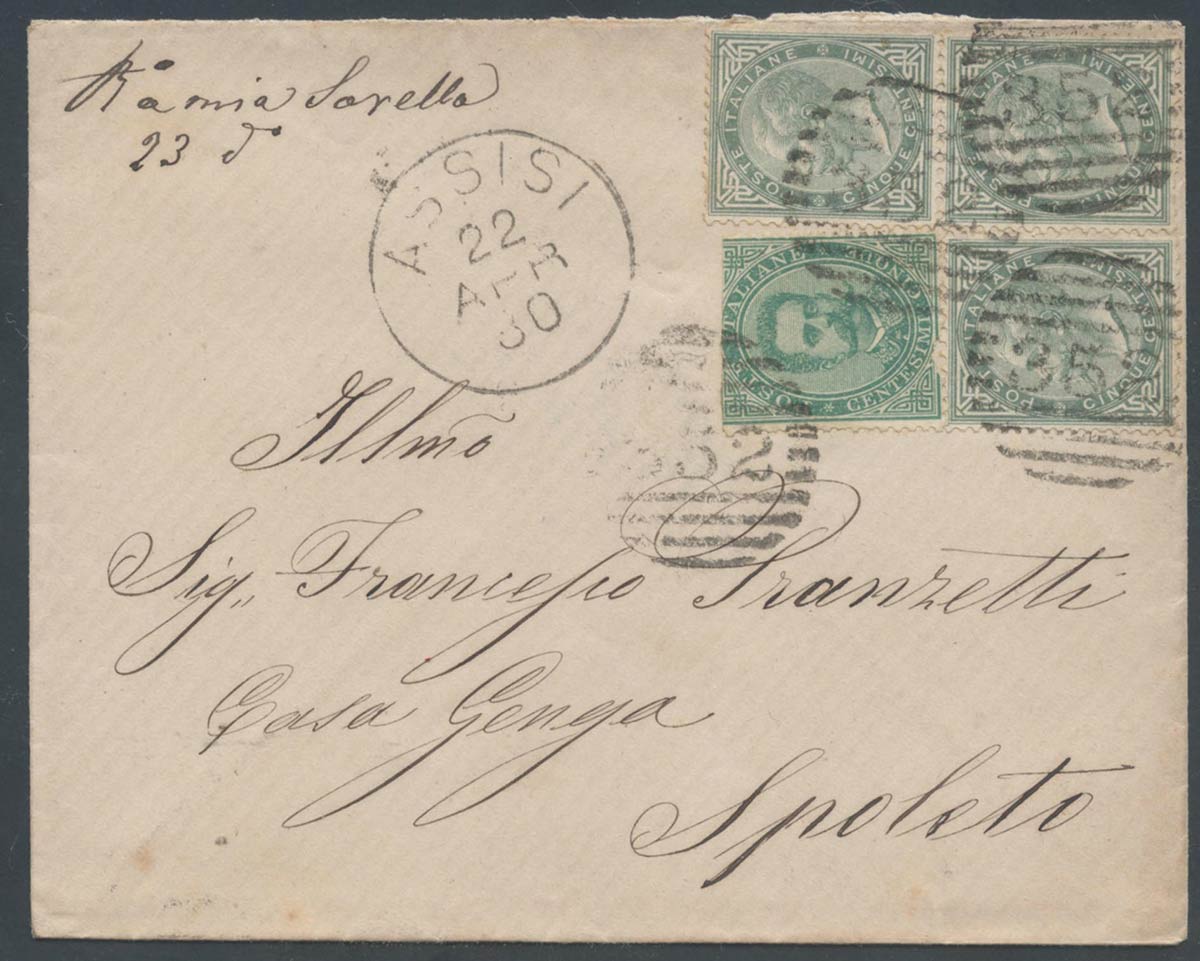 Ra mia Sorella
23 do
ASSISI
22
APR
80
POSTE ITALIANE
CINQUE CENTESIMI
POSTE ITALIANE
CINQUE CENTESIMI
35
POSTE ITALIANE
CENTESIMI
POSTE ITALIANE
CINQUE CENTESIMI
35
Illmo
Sig,, Francesco Franzetti
Casa Genga
Spoleto